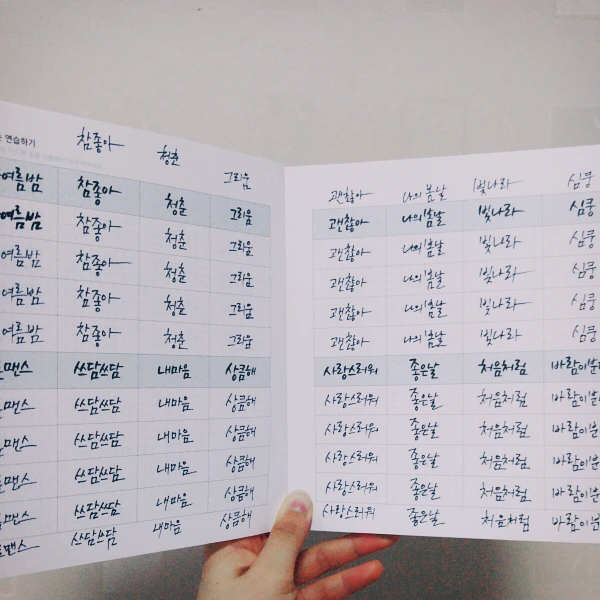 연습하기
참좋아 청춘 그리움
여름밤 참좋아 청춘 그리움
여름밤 참좋아 청춘 그리움
여름밤 참좋아 청춘 그리움
여름밤 참좋아 청춘 그리움
여름밤 참좋아 청춘 그리움
맨스 쓰담쓰담 내마음 상큼해
맨스 쓰담쓰담 내마음 상큼해
맨스 쓰담쓰담 내마음 상큼해
맨스 쓰담쓰담 내마음 상큼해
맨스 쓰담쓰담 내마음 상큼해
맨스 쓰담쓰담 내마음 상큼해
괜찮아 나의봄날 빛나라 심쿵
괜찮아 나의봄날 빛나라 심쿵
괜찮아 나의봄날 빛나라 심쿵
괜찮아 나의봄날 빛나라 심쿵
괜찮아 나의봄날 빛나라 심쿵
괜찮아 나의봄날 빛나라 심쿵
사랑스러워 좋은날 처음처럼 바람이분
사랑스러워 좋은날 처음처럼 바람이분
사랑스러워 좋은날 처음처럼 바람이분
사랑스러워 좋은날 처음처럼 바람이분
사랑스러워 좋은날 처음처럼 바람이분
사랑스러워 좋은날 처음처럼 바람이분